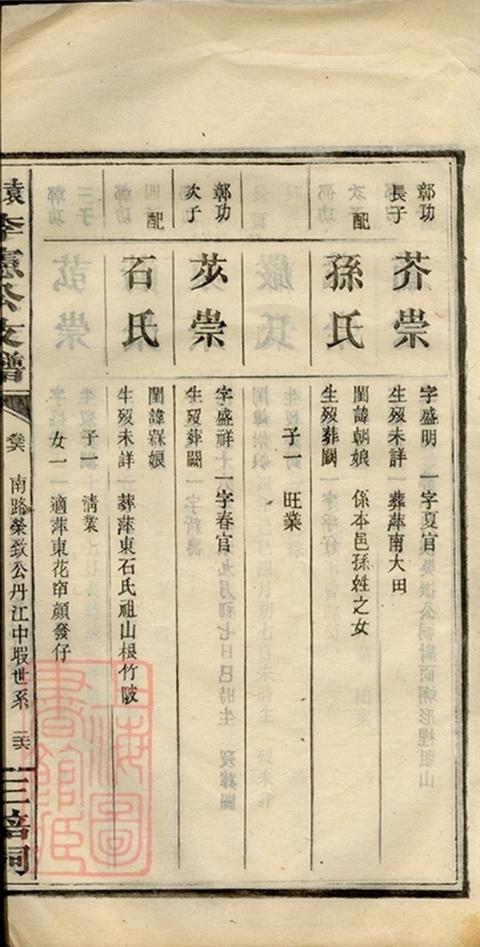 彰功
長子
芥崇
字盛明 一字夏官
生歿未詳 葬萍南大田
孫氏
閨諱朝娘 係本邑孫姓之女
生歿葬闕
子一 旺業
彰功
次子
苾崇
字盛祥 一字春官
生歿葬闕
配
石氏
閨諱嫁娘
生歿未詳 葬萍東石氏祖山根竹陂
子一 清業
女一 適萍東花㓊顔發仔
袁李憲公支譜
南路榮致公丹江中瑕世系
上海圖書館藏